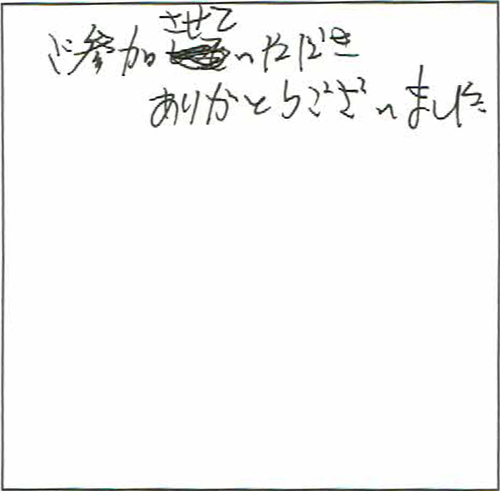 ご参加させていただき
ありがとうございました